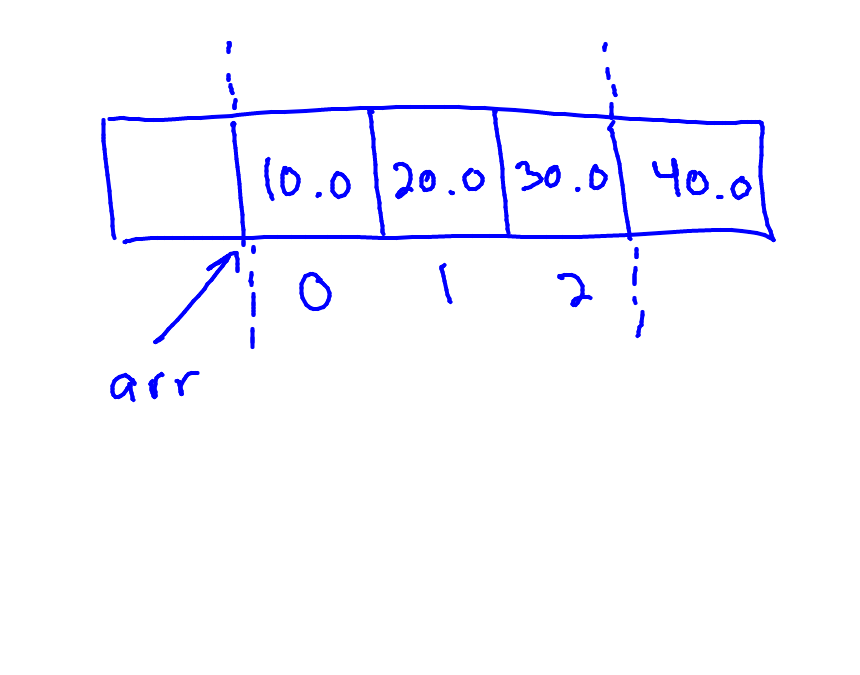 10.0 20.0 30.0 40.0
0 1 2
arr